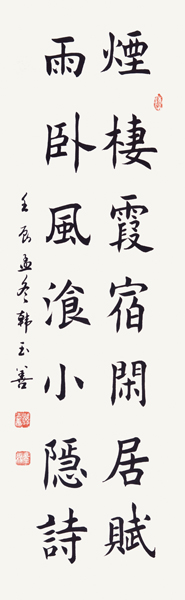 煙棲霞宿閑居賦
雨臥風飡小隱詩
壬辰孟冬韓玉善